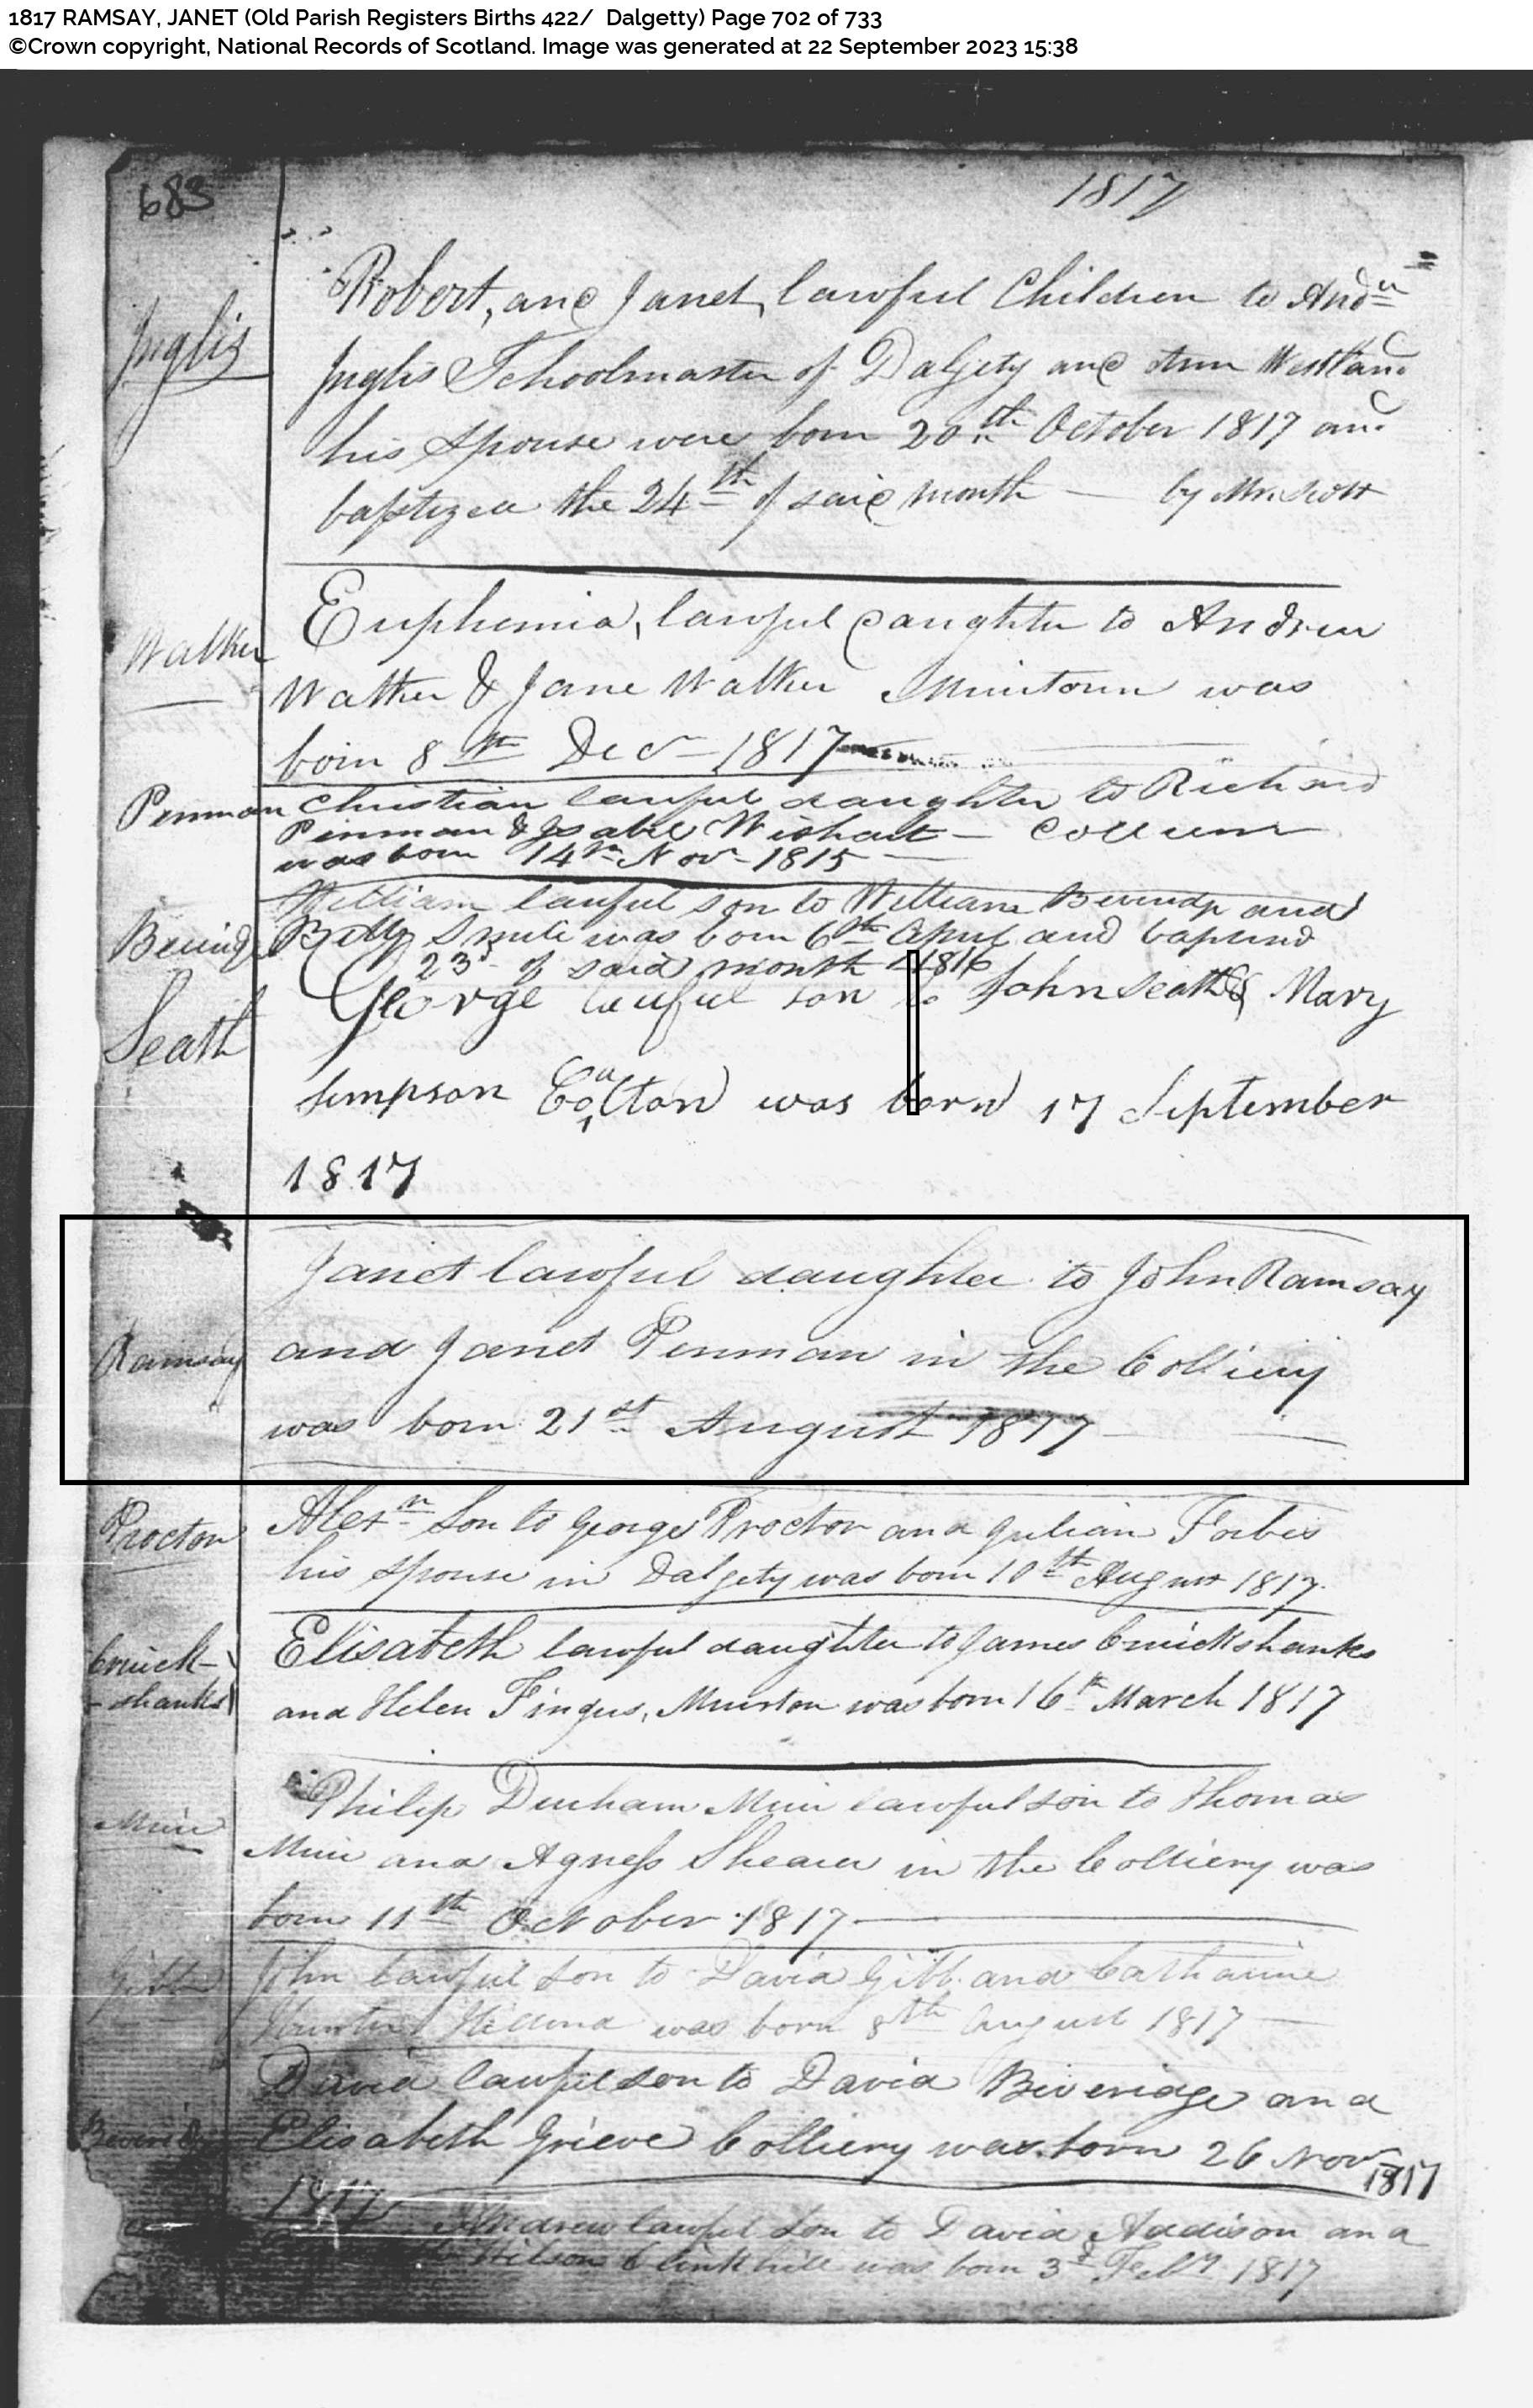 1817 RAMSAY, JANET (Old Parish Registers Births 422/ Dalgetty) Page 702 of 733
©Crown copyright, National Records of Scotland. Image was generated at 22 September 2023 15:38
683
1817
Inglis
Robert, and Janet, lawful Children to Andw
Inglis Schoolmaster of Dalgety and Ann Westland
his spouse were born 20th October 1817 and
baptized the 24th of said month — by Mr Scott
Walker
Euphemia, lawful daughter to Andrew
Walker & Jane Walker was
born 8th Decr 1817
Penman
Christian lawful daughter to Richard
Penman & Isabel Wishart —
was born 14th Novr 1815
William lawful son to William and
Betty was born 6th April and baptized
23d of said month 1816
Seath
George lawful son to John Seath & Mary
Simpson was born 17 September
1817
Ramsay
Janet lawful daughter to John Ramsay
and Janet Penman in the Colliery
was born 21st August 1817
Proctor
Alexr Son to George Proctor and Julian Forbes
his spouse in Dalgety was born 10th August 1817.
Cruick-
-shanks
Elisabeth lawful daughter to James Cruickshanks
and Helen Fingus, was born 16th March 1817
Muir
Philip Durham Muir lawful son to Thomas
Muir and Agness Shearer in the Colliery was
born 11th October 1817
Gibb
John lawful son to David Gibb and Catharine
Hunter was born 8th August 1817
Beveridge
David lawful son to David Beveridge and
Elisabeth Grieve Colliery was born 26 Novr
1817
1817
Andrew lawful Son to David Addison and
Wilson Clinkhill was born 3d Feby 1817